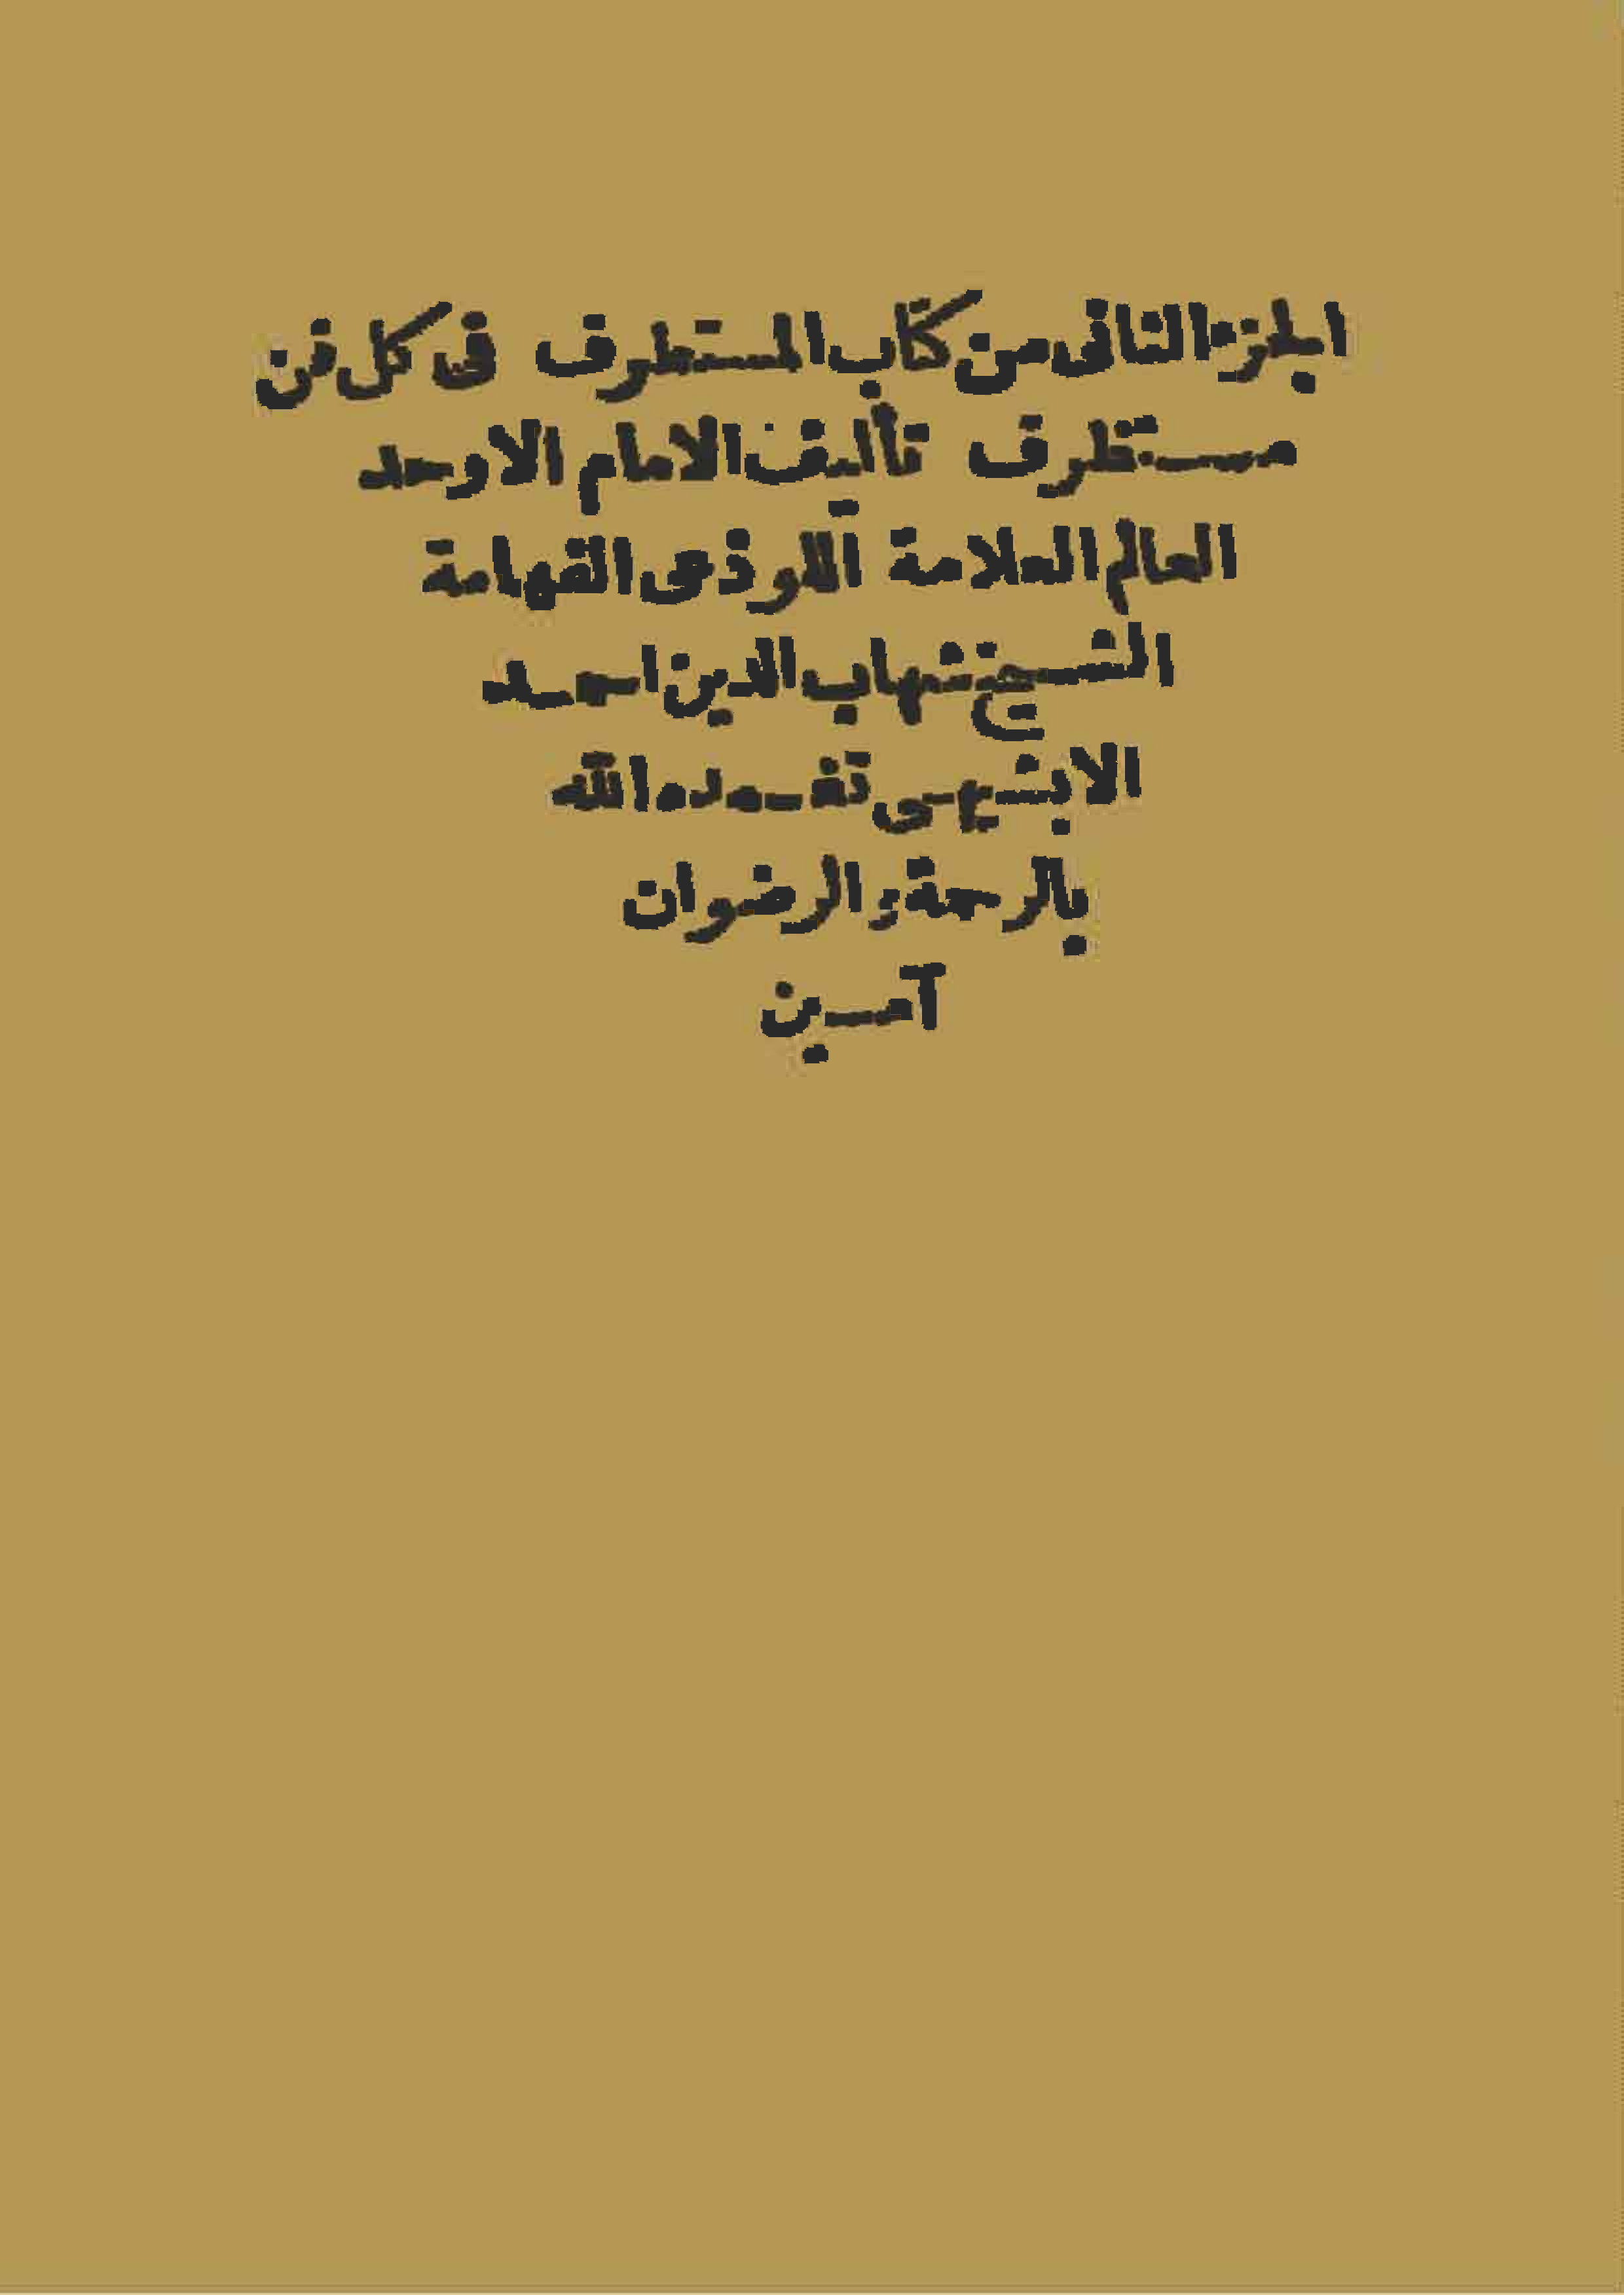 الجزء الثانى من كتاب المستطرف فى كل فن
مستظرف تأليف الامام الاوحد
العالم العلامة اللوذعى الفهامة
الشيخ شهاب الدين احمد
الابشيهى تغمده الله
بالرحمة والرضوان
آمين